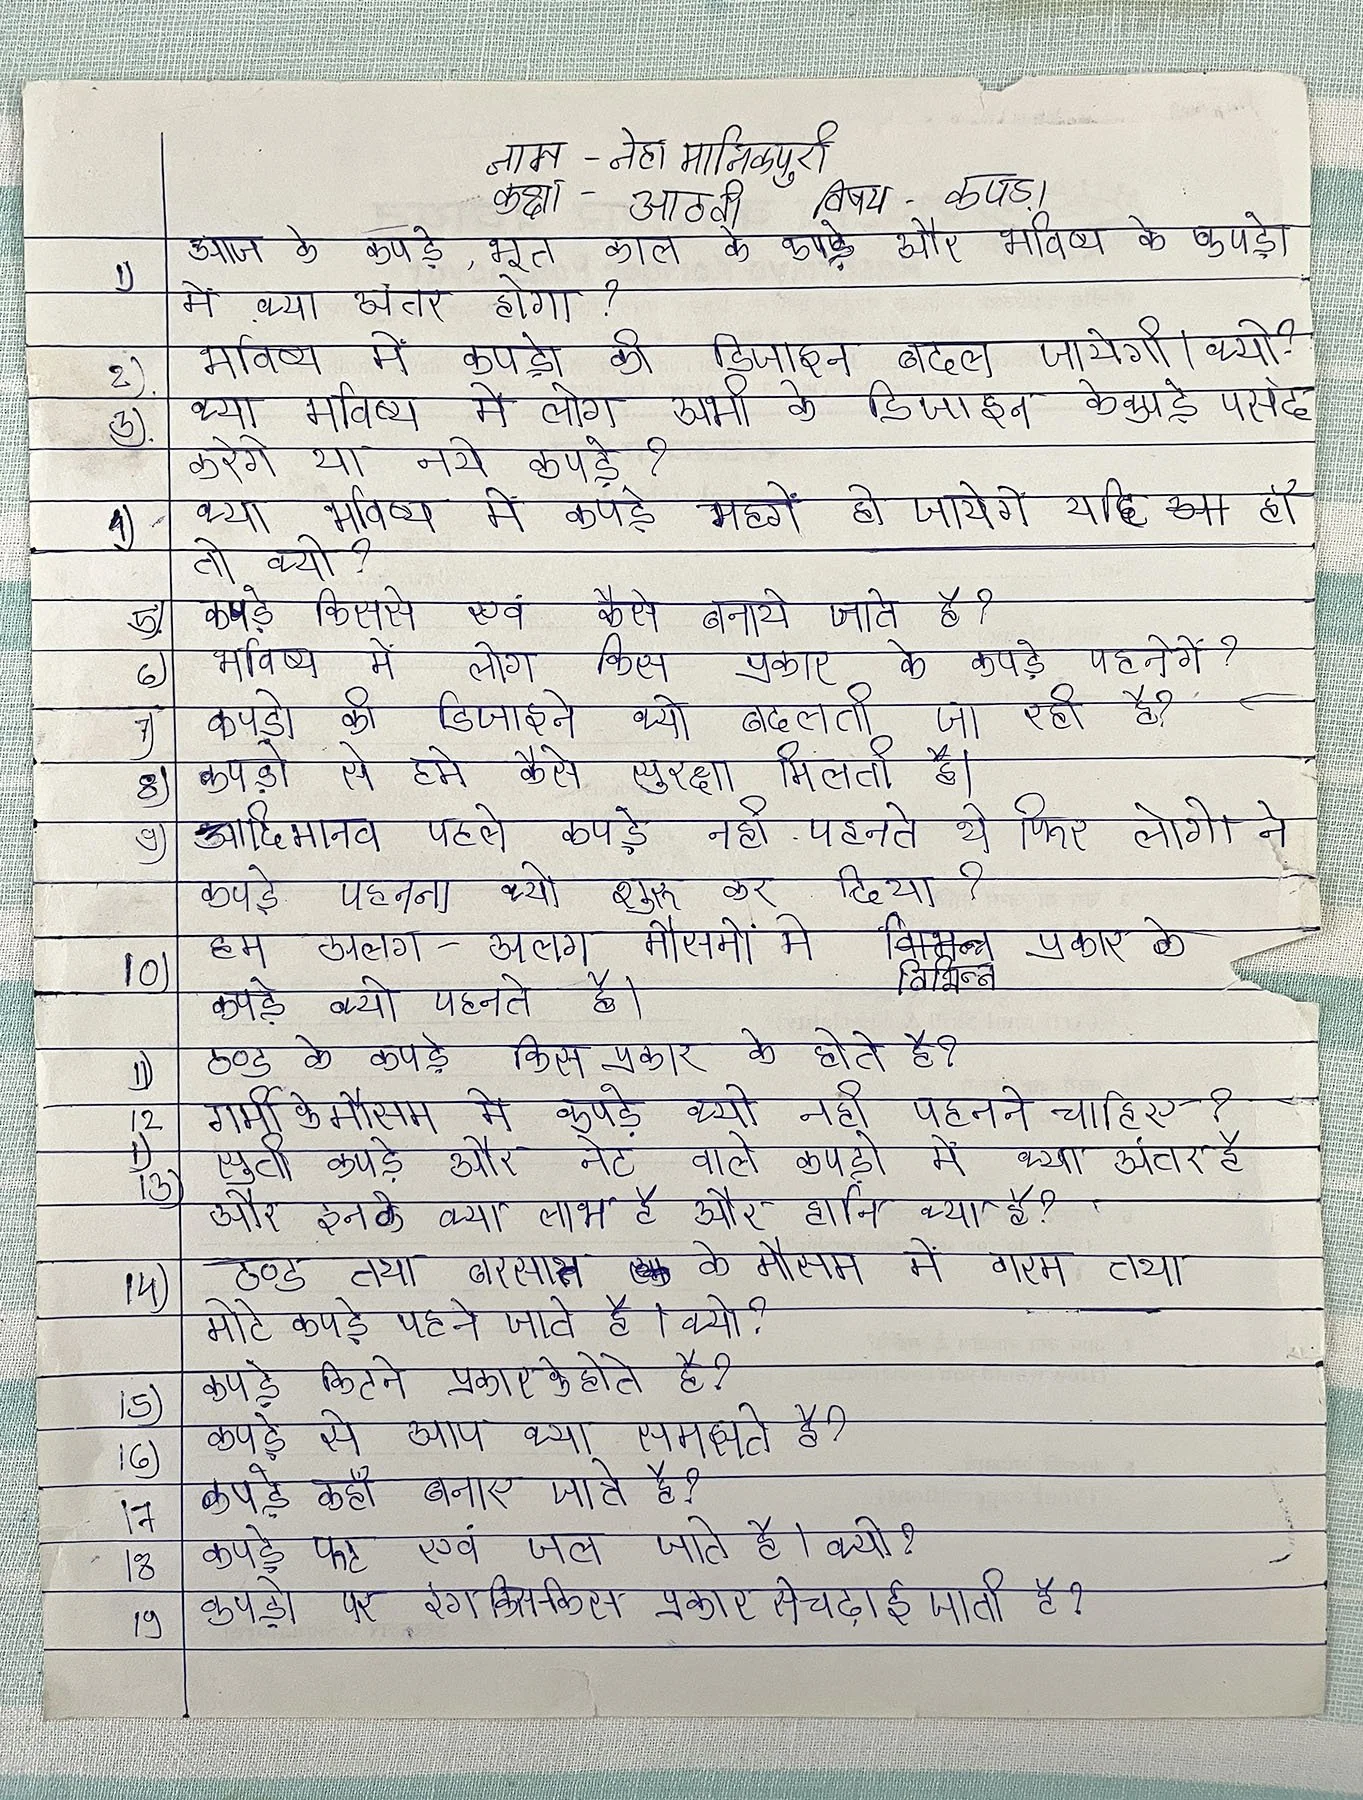 नाम - नेहा मानिकपुरी
कक्षा - आठवी विषय - कपड़ा
1) आज के कपड़े, भूत काल के कपड़े और भविष्य के कपड़ो
में क्या अंतर होगा?
2). भविष्य में कपड़ो की डिजाइन बदल जायेगी। क्यो?
3). क्या भविष्य में लोग अभी के डिजाइन के कपड़े पसंद
करेगे या नये कपड़े?
4) क्या भविष्य में कपड़े महगें हो जायेगें यदि हाँ
तो क्यो?
5) कपड़े किससे एवं कैसे बनाये जाते है?
6) भविष्य में लोग किस प्रकार के कपड़े पहनेगें?
7) कपड़ो की डिजाइने क्यो बदलती जा रही है?
8) कपड़ो से हमे कैसे सुरक्षा मिलती है।
9) आदिमानव पहले कपड़े नही पहनते थे फिर लोगो ने
कपड़े पहनना क्यो शुरू कर दिया?
10) हम अलग - अलग मौसमों मे विभिन्न प्रकार के
विभिन्न
कपड़े क्यो पहनते है।
11) ठण्ड के कपड़े किस प्रकार के होते है?
12 गर्मी के मौसम मे कपड़े क्यो नही पहनने चाहिए?
1) सुती कपड़े और नेट वाले कपड़ो में क्या अंतर है
13) और इनके क्या लाभ है और हानि क्या है?
14) ठण्ड तथा बरसात के मौसम में गरम तथा
मोटे कपड़े पहने जाते है। क्यो?
15) कपड़े कितने प्रकार के होते है?
16) कपड़े से आप क्या समझते है?
17 कपड़े कहाँ बनाए जाते है?
18 कपड़े फट एवं जल जाते है। क्यो?
19 कपड़ो पर रंग किस-किस प्रकार से चढ़ाई जाती है?